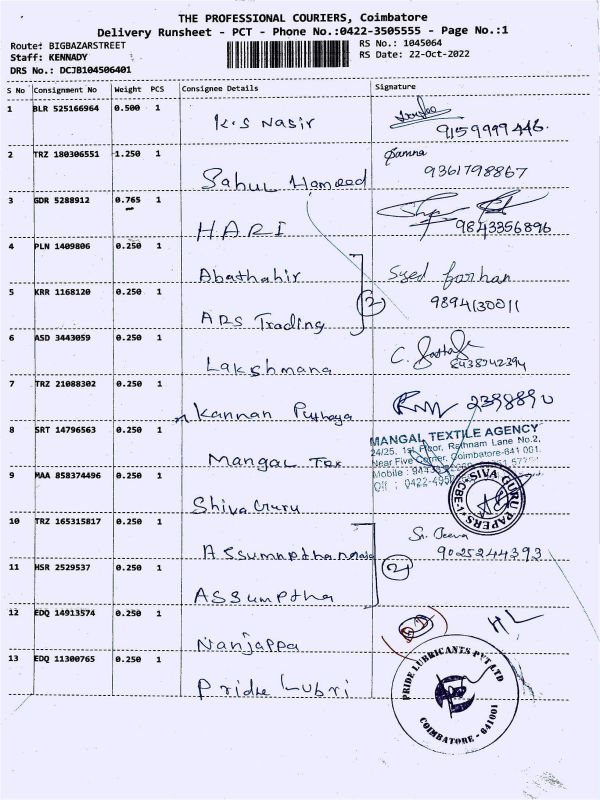 THE PROFESSIONAL COURIERS, Coimbatore
Delivery Runsheet - PCT - Phone No.:0422-3505555 - Page No.:1
Route: BIGBAZARSTREET
Staff: KENNADY
DRS No.: DCJB104506401
RS No.: 1045064
RS Date: 22-Oct-2022
S No Consignment No Weight PCS Consignee Details Signature
1 BLR 525166964 0.500 1
K.S Nasir
9159999446.
2 TRZ 180306551 1.250 1
Sahul Hameed
9361798867
3 GDR 5288912 0.765 1
HARI
9843356896
4 PLN 1409806 0.250 1
Abathahir
Syed farhan
5 KRR 1168120 0.250 1
2
9894130011
ARS Trading
6 ASD 3443059 0.250 1
Lakshmana
8438742394
7 TRZ 21088302 0.250 1
Kannan
2398890
8 SRT 14796563 0.250 1
Mangal Tex
MANGAL TEXTILE AGENCY
24/25, 1st Floor, Rathnam Lane No.2,
Near Five Corner, Coimbatore-641 001.
Mobile :
Off : 0422-495
9 MAA 858374496 0.250 1
Shiva Guru
SIVA GURU PAPERS
CBE-1
10 TRZ 165315817 0.250 1
Jeeva
9025244393
11 HSR 2529537 0.250 1
2
Assumptha
12 EDQ 14913574 0.250 1
Nanjappa
HL
13 EDQ 11300765 0.250 1
Pride Lubri
PRIDE LUBRICANTS PVT LTD
COIMBATORE - 641001